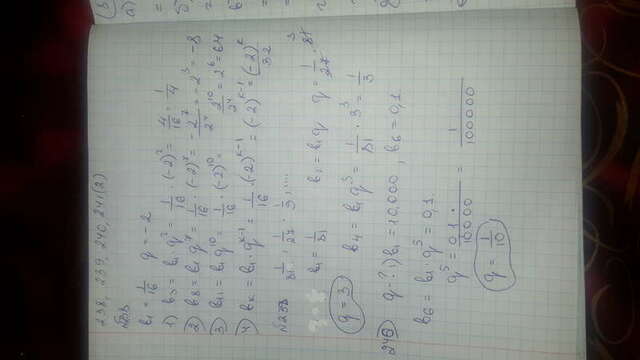 238, 239, 240, 241(2)
№238
b₁ = 1/16   q = -2
1) b₃ = b₁ q² = 1/16 · (-2)² = 4/16 = 1/4
2) b₈ = b₁ q⁷ = 1/16 · (-2)⁷ = -2⁷/2⁴ = -2³ = -8
3) b₁₁ = b₁ q¹⁰ = 1/16 · (-2)¹⁰ = 2¹⁰/2⁴ = 2⁶ = 64
4) bₖ = b₁ · qᵏ⁻¹ = 1/16 · (-2)ᵏ⁻¹ = (-2)ᵏ⁻¹ = (-2)ᵏ/32
№239
1/81 ; 1/27 ; 1/9 ; ....
b₁ = 1/81   b₂ = b₁ q   q = 1/27 · 81 3
q = 3   b₄ = b₁ q³ = 1/81 · 3³ = 1/3
240   q - ? 1) b₁ = 10,000, b₆ = 0,1
b₆ = b₁ q⁵ = 0,1
q⁵ = 0,1 · 1/10000 = 1/100000
q = 1/10